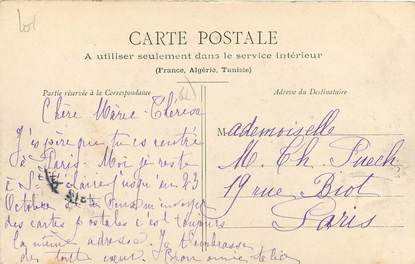 CARTE POSTALE
A utiliser seulement dans le service intérieur
(France, Algérie, Tunisie)
Partie réservée à la Correspondance
Adresse du Destinataire
Chère Marie-Thérèse
J'espère que tu es rentrée
à Paris. Moi je reste
à Ste Claire jusqu'au 23
Octobre
des cartes postales c'est toujours
la même adresse. Je t'embrasse
de tout cœur.
Mademoiselle
M. Th. Puech
19 rue Biot
Paris